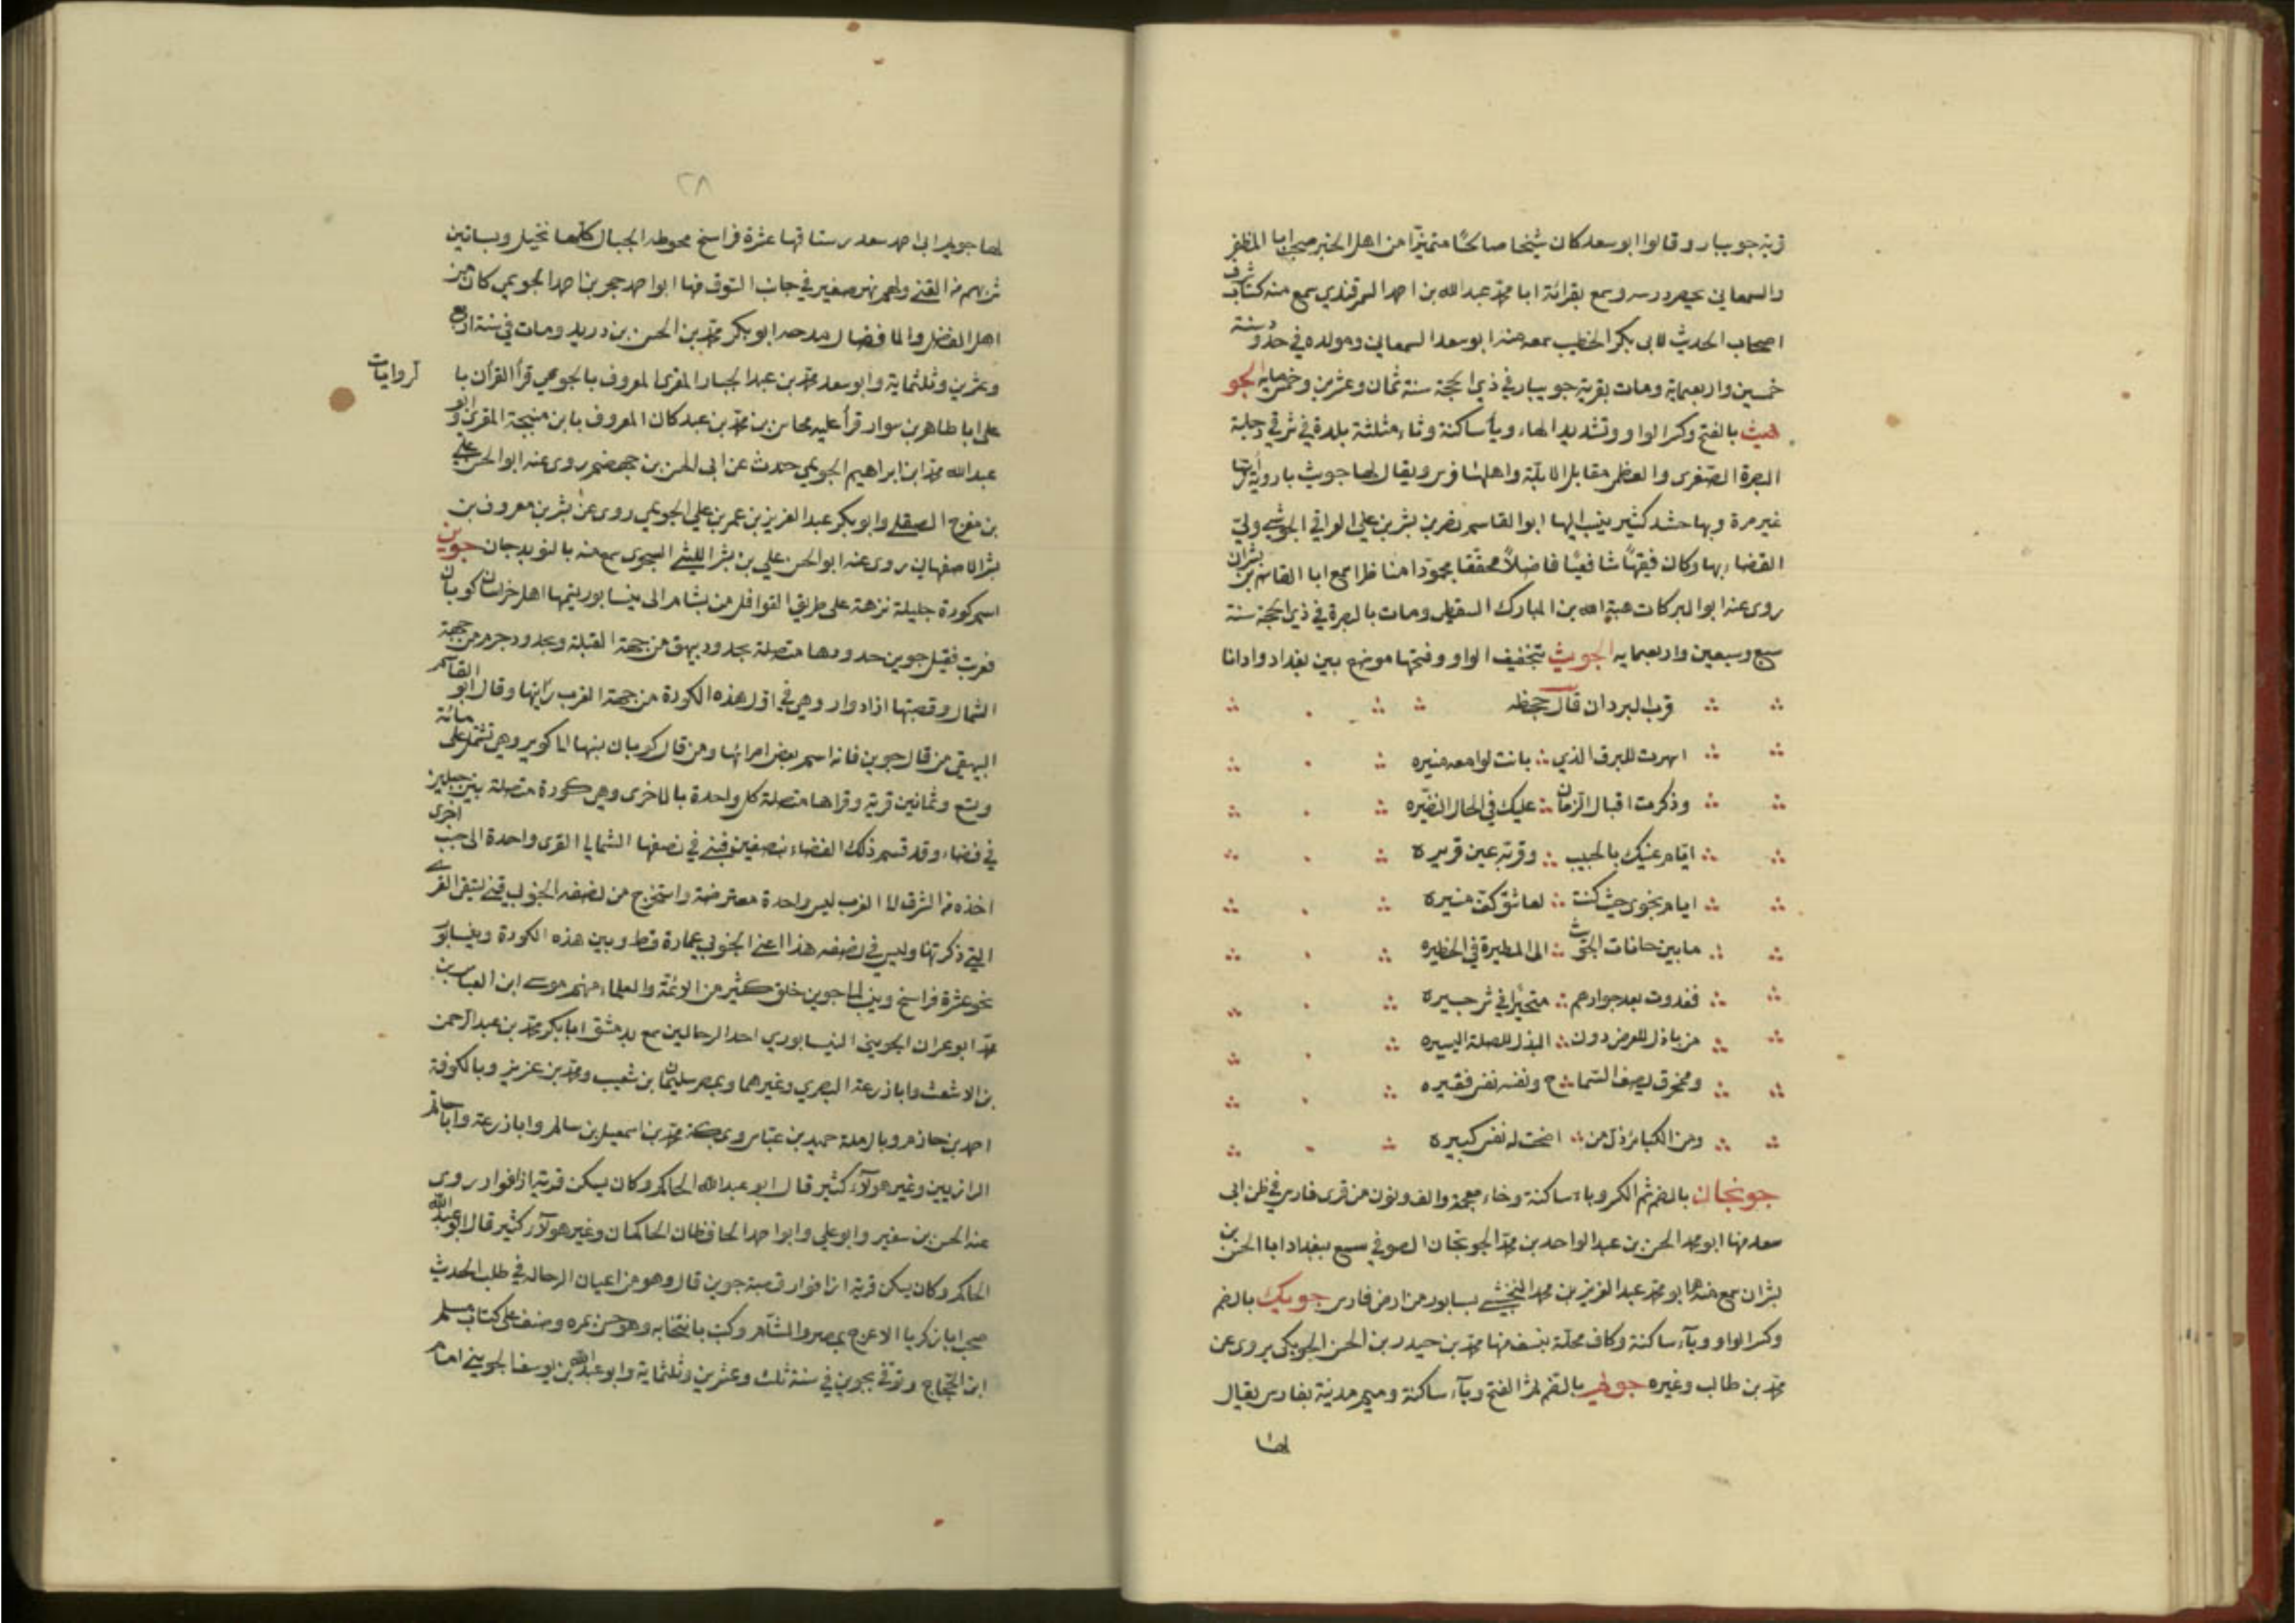 قرية جويبار وقالوا ابو سعد كان شيخا صالحًا متميزًا من اهل الخير صحب ابا المظفر
والسمعاني بحصر درسه وسمع بقرائة ابا محمد عبد الله بن احمد السمرقندي سمع منه كتاب شرف
اصحاب الحديث لابى بكر الخطيب سمعه منه ابو سعد السمعاني ومولده في حدود سنة
خمسين واربعماية ومات بقرية جويبار في ذي الحجة سنة ثمان وعشرين وخمسمايه الجو
يث بالفتح وكسر الواو وتشديد الهاء وياء ساكنة وثاء مثلثة بلدة في شرقي دجلة
البصرة الصغرى والعظمى مقابل الابلة واهلها فرس ويقال لها جويث بارويه رأيتها
غير مرة وبها حشد كثير ينسب اليها ابو القاسم نصر بن بشر بن علي الواقي الجويثي ولي
القضاء بها وكان فقيهًا شافعيًا فاضلًا محققا مجودا مناظرا سمع ابا القاسم بن بشران
روى عنه ابو البركات هبة الله بن المبارك السقطي ومات بالبصرة في ذي الحجة سنة
سبع وسبعين واربعمايه الجويث بتخفيف الواو وفتحها موضع بين بغداد واوانا
قرب البردان قال جحظه
اسهرت للبرق الذي باتت لوامعه منيره
وذكرت اقبال الزمان عليك في الحال النضيره
ايام عينك بالحبيب وقربه عين قريره
ايام نجوى حيث كنت لعاشق كف منيره
ما بين حانات الجويث الى المطيرة في الحظيره
فغدوت بعد جوارهم متحيرًا في شر جيره
من باذل للعرض دون البذل للصلة اليسيره
وممخرق يصف السماح ونفسه نفس فقيره
ومن الكبائر ذل من اضحت له نفس كبيره
جويخان بالضم ثم الكسر وياء ساكنة وخاء معجمة والف ونون من قرى فارس في ظن ابى
سعد منها ابو محمد الحسن بن عبد الواحد بن محمد الجويخان الصوفي سمع ببغداد ابا الحسن بن
بشران سمع منه ابو محمد عبد العزيز بن محمد النخشبي بسابور من ارض فارس جويك بالضم
وكسر الواو وياء ساكنة وكاف محلة بنسف منها محمد بن حيدر بن الحسن الجويكى يروى عن
محمد بن طالب وغيره جويم بالضم ثم الفتح وياء ساكنة وميم مدينة بفارس يقال
لها
٢٨
لها جويم ابى احمد سعد رستاقها عشرة فراسخ محوطه الجبال كلها نخيل وبساتين
شربهم من القنى ولهم نهر صغير في جانب السوق منها ابو احمد حجر بن احمد الجويمي كان من
اهل الفضل والافضال مدحه ابو بكر محمد بن الحسن بن دريد ومات في سنة اربع
وعشرين وثلثماية وابو سعد محمد بن عبد الجبار المقرى المعروف بالجويمي قرأ القرأن با
لروايات
على ابا طاهر بن سوار قرأ عليه محاسن بن محمد بن عبد كان المعروف بابن منبجة المقرى وابو
عبد الله محمد ابن ابراهيم الجويمي حدث عن ابى الحسن بن جهضم روى عنه ابو الحسن علي
بن مفرج الصقلي وابو بكر عبد العزيز بن عمر بن علي الجويمي روى عن بشر بن معروف بن
بشر الاصفهاني روى عنه ابو الحسن علي بن بشر الليثي السجزى سمع منه بالنوبدجان جوين
اسم كورة جليلة نزهة على طريق القوافل من بسام الى نيسابور يسمها اهل خراسان كويان
فعرب فقيل جوين حدودها متصلة بحدود بيهق من جهة القبلة وبحدود جرم من جهة
الشمال وقصبتها ازادوار وهي في اول هذه الكورة من جهة الغرب رأيتها وقال ابو القاسم
البيهقي من قال جوين فانه اسم بعض امرائها ومن قال كويان بنسبها الى كوير وهي تشتمل على مائة
وتسع وثمانين قرية وقراها متصلة كل واحدة بالاخرى وهي كورة متصلة بين جبلين
في فضاء وقد قسم ذلك الفضاء نصفين فبنى في نصفها الشمالي القرى واحدة الى جنب اخرى
اخذه من الشرق الى الغرب ليس واحدة معترضة واستخرج من نصفه الجنوبي قنى تسقى القرى
التي ذكرتها وليس في نصفه هذا اعنى الجنوبي عمارة قط وبين هذه الكورة ونيسابور
نحو عشرة فراسخ وينسب الى جوين خلق كثير من الائمة والعلماء منهم موسى ابن العباس بن
محمد ابو عمران الجوينى النيسابوري احد الرحالين سمع بدمشق ابا بكر محمد بن عبد الرحمن
بن الاشعث وابا زرعة البصري وغيرهما وبمصر سليمان بن شعيب ومحمد بن عزيز وبالكوفة
احمد بن حازم وبالرملة حميد بن عباس وبمكة محمد بن اسمعيل بن سالم وابا زرعة وابا حاتم
الرازيين وغير هولآء كثير قال ابو عبد الله الحاكم وكان يسكن قرية ازافوار روى
عنه الحسن بن سفير وابو علي وابو احمد الحافظان الحاكمان وغير هولآء كثير قال ابو عبد الله
الحاكم وكان يسكن قرية ازافوار قصبة جوين قال وهو من اعيان الرحاله في طلب الحديث
صحب ابا زكريا الاعرج بمصر والشام وكتب بانتخابه وهو حسن بمره وصنف على كتاب مسلم
ابن الحجاج وتوفي بجوين في سنة ثلث وعشرين وثلثماية وابو عبد الله بن يوسف الجويني امام